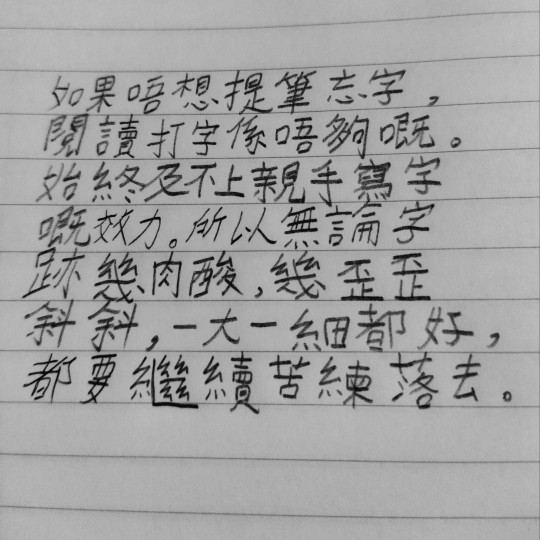 如果唔想提筆忘字，
閱讀打字係唔夠嘅。
始終及不上親手寫字
嘅效力。所以無論字
跡幾肉酸，幾歪歪
斜斜，一大一細都好，
都要繼續苦練落去。